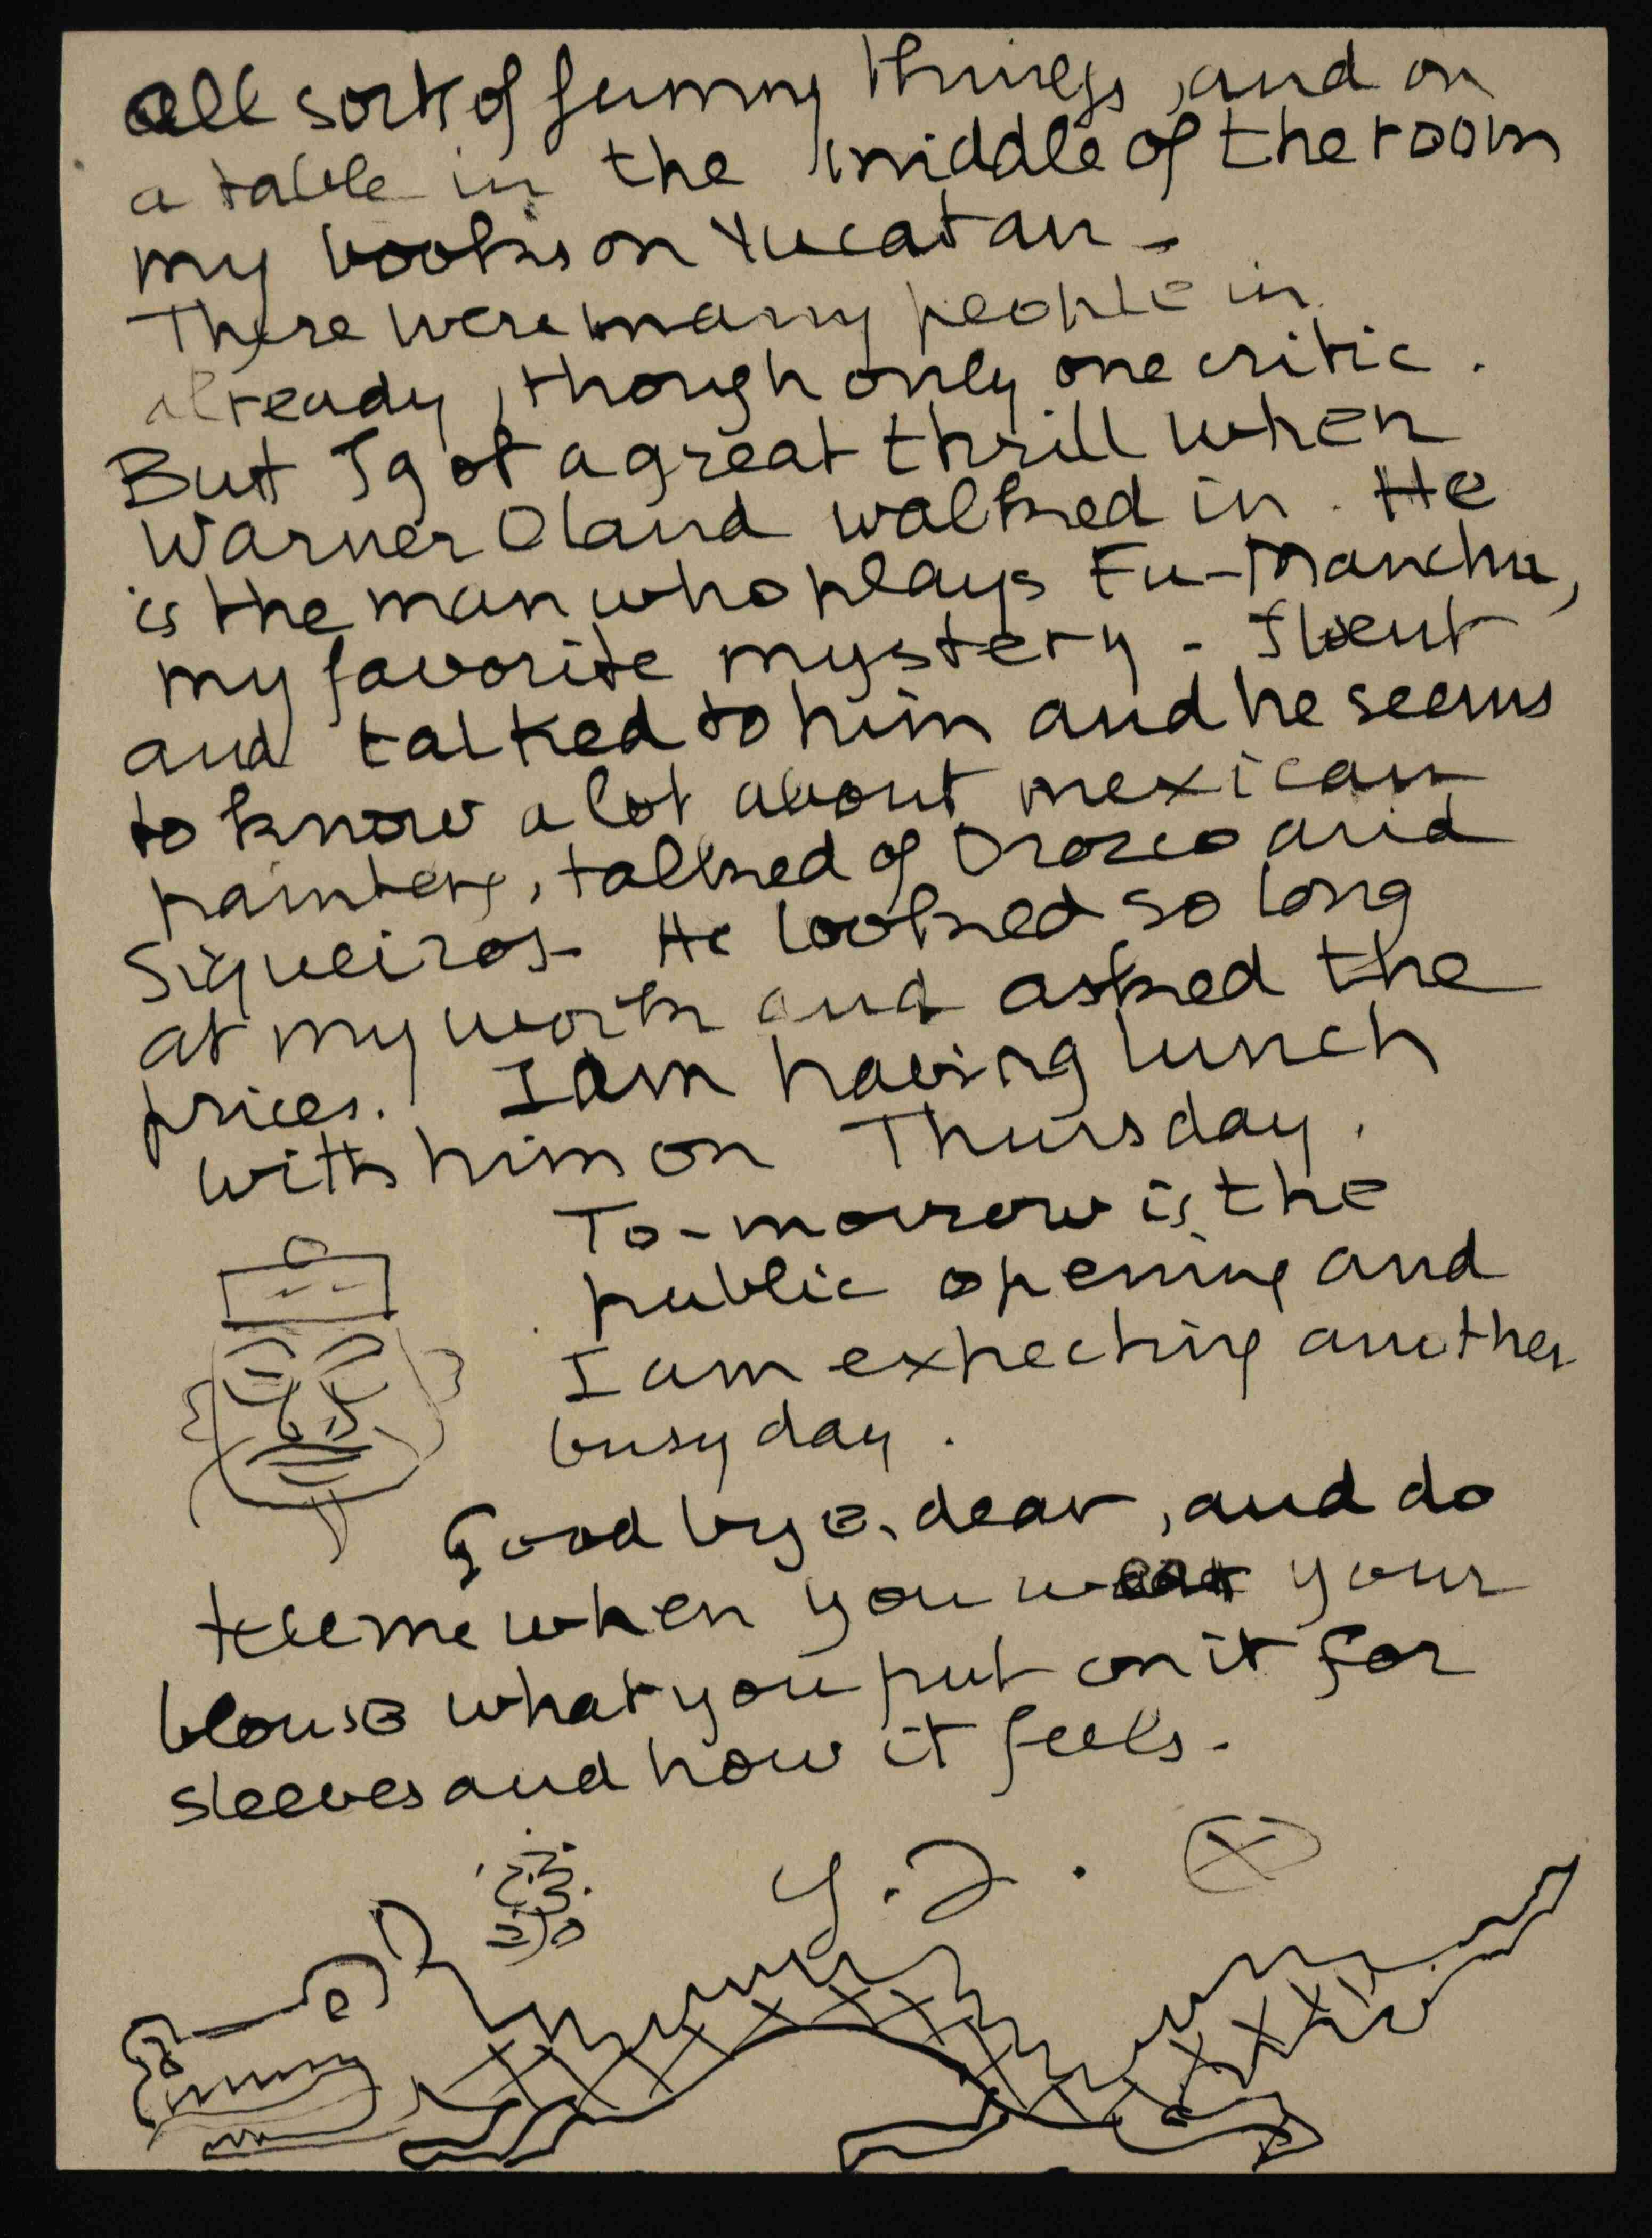 all sort of funny things, and on
a table in the middle of the room
my books on Yucatan -
There were many people in
already, though only one critic.
But I got a great thrill when
Warner Oland walked in. He
is the man who plays Fu-Manchu,
my favorite mystery - I went
and talked to him and he seems
to know a lot about mexican
painters, talked of Orozco and
Siqueiros - He looked so long
at my work and asked the
prices. I am having lunch
with him on Thursday.
To-morrow is the
public opening and
I am expecting another
busy day.
Good bye, dear, and do
tell me when you wear your
blouse what you put on it for
sleeves and how it feels -